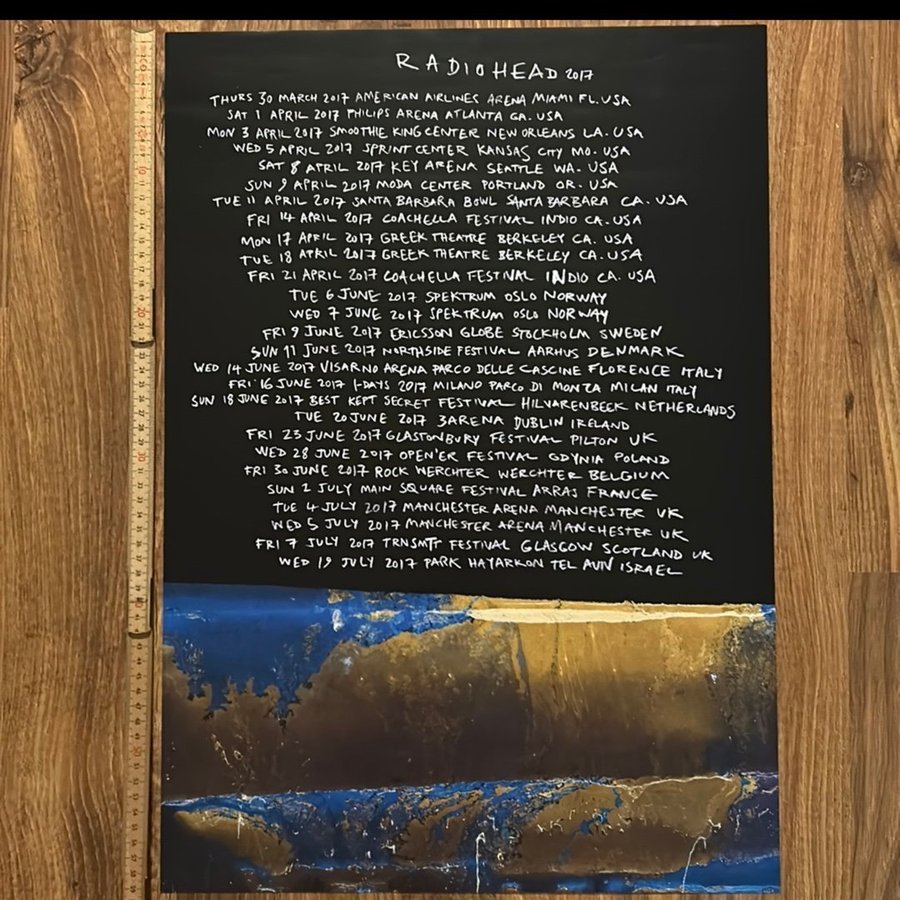 RADIOHEAD 2017
THURS 30 MARCH 2017 AMERICAN AIRLINES ARENA MIAMI FL. USA
SAT 1 APRIL 2017 PHILIPS ARENA ATLANTA GA. USA
MON 3 APRIL 2017 SMOOTHIE KING CENTER NEW ORLEANS LA. USA
WED 5 APRIL 2017 SPRINT CENTER KANSAS CITY MO. USA
SAT 8 APRIL 2017 KEY ARENA SEATTLE WA. USA
SUN 9 APRIL 2017 MODA CENTER PORTLAND OR. USA
TUE 11 APRIL 2017 SANTA BARBARA BOWL SANTA BARBARA CA. USA
FRI 14 APRIL 2017 COACHELLA FESTIVAL INDIO CA. USA
MON 17 APRIL 2017 GREEK THEATRE BERKELEY CA. USA
TUE 18 APRIL 2017 GREEK THEATRE BERKELEY CA. USA
FRI 21 APRIL 2017 COACHELLA FESTIVAL INDIO CA. USA
TUE 6 JUNE 2017 SPEKTRUM OSLO NORWAY
WED 7 JUNE 2017 SPEKTRUM OSLO NORWAY
FRI 9 JUNE 2017 ERICSSON GLOBE STOCKHOLM SWEDEN
SUN 11 JUNE 2017 NORTHSIDE FESTIVAL AARHUS DENMARK
WED 14 JUNE 2017 VISARNO ARENA PARCO DELLE CASCINE FLORENCE ITALY
FRI 16 JUNE 2017 I-DAYS 2017 MILANO PARCO DI MONZA MILAN ITALY
SUN 18 JUNE 2017 BEST KEPT SECRET FESTIVAL HILVARENBEEK NETHERLANDS
TUE 20 JUNE 2017 3ARENA DUBLIN IRELAND
FRI 23 JUNE 2017 GLASTONBURY FESTIVAL PILTON UK
WED 28 JUNE 2017 OPEN'ER FESTIVAL GDYNIA POLAND
FRI 30 JUNE 2017 ROCK WERCHTER WERCHTER BELGIUM
SUN 2 JULY MAIN SQUARE FESTIVAL ARRAS FRANCE
TUE 4 JULY 2017 MANCHESTER ARENA MANCHESTER UK
WED 5 JULY 2017 MANCHESTER ARENA MANCHESTER UK
FRI 7 JULY 2017 TRNSMT FESTIVAL GLASGOW SCOTLAND UK
WED 19 JULY 2017 PARK HAYARKON TEL AVIV ISRAEL